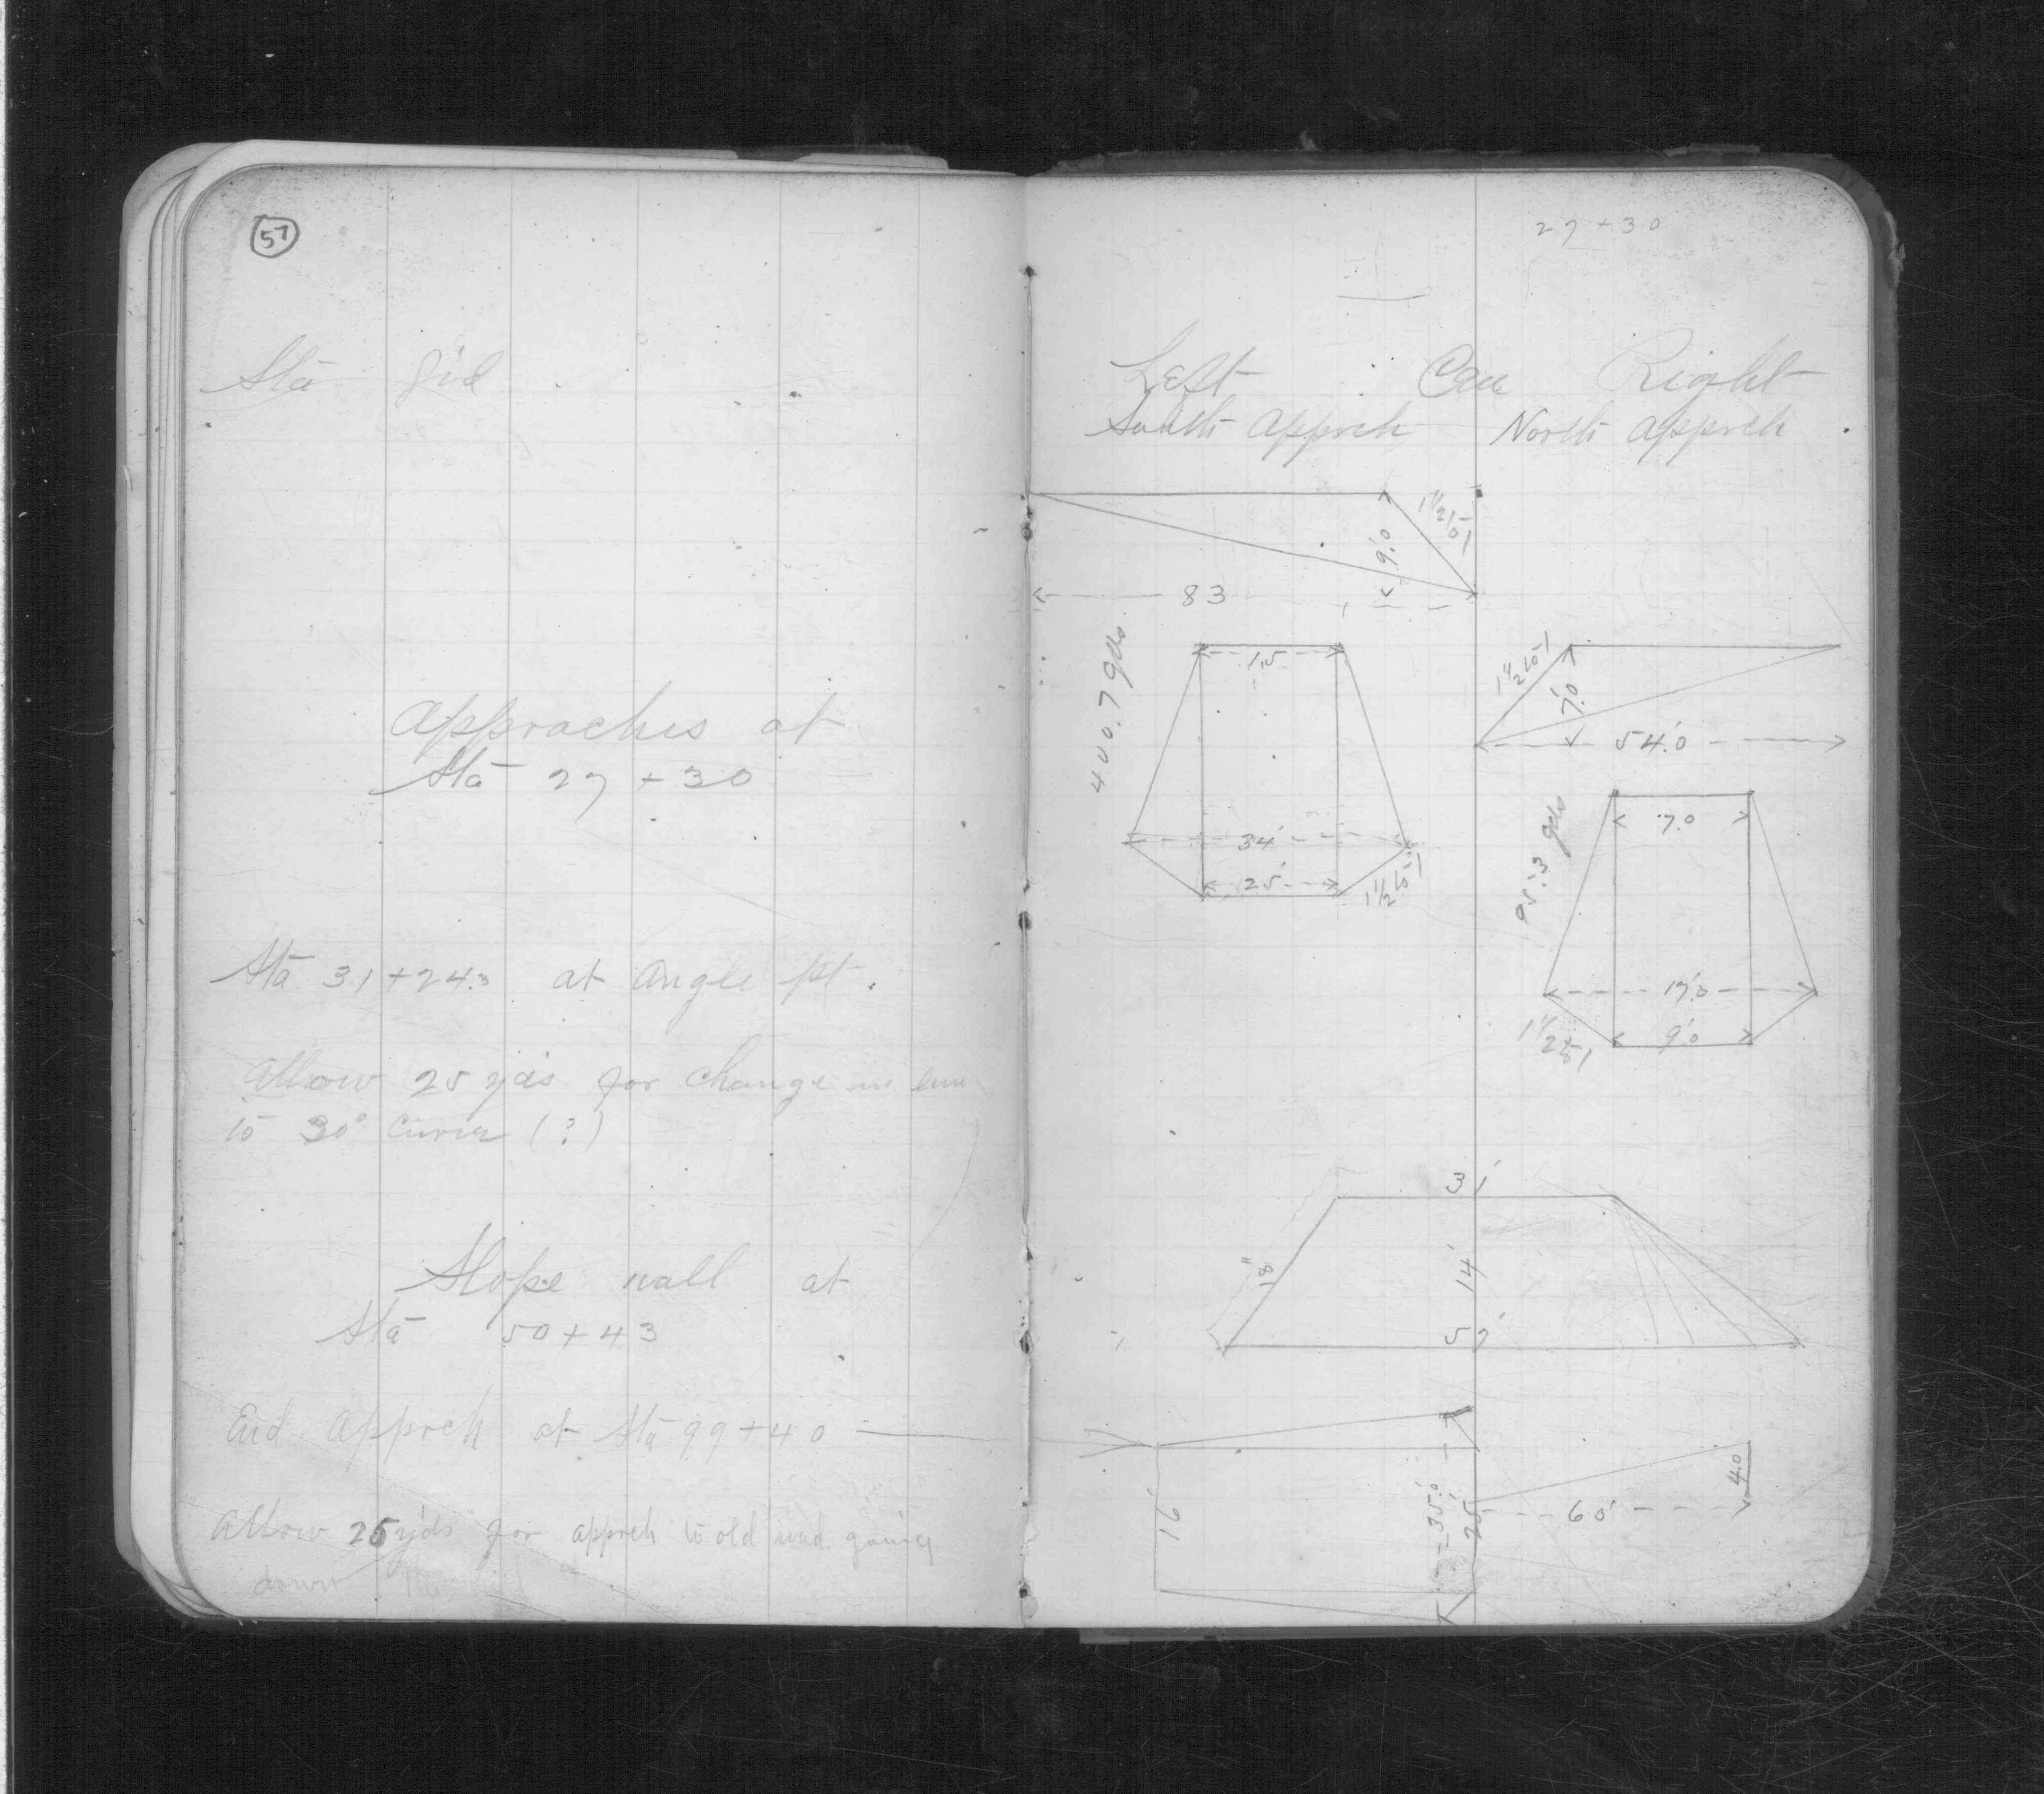 57
Sta Grd
Approaches at
Sta 27 + 30
Sta 31 + 24.3 at Angle pt.
Allow 25 yds for change in line
to 30° Curve (?)
Slope wall at
Sta 50 + 43
End Apprch at Sta 99 + 40
Allow 25 yds for apprch to old road going
down the
27 + 30
Left Cen Right
South Apprch North Apprch
1 1/2 to 1
9.0
83
400.7 yds
15
34'
25'
1 1/2 to 1
1 1/2 to 1
7.0
54.0
95.3 yds
7.0
19.0
9.0
1 1/2 to 1
31'
18"
14'
57'
16'
35.0
25'
60'
4.0